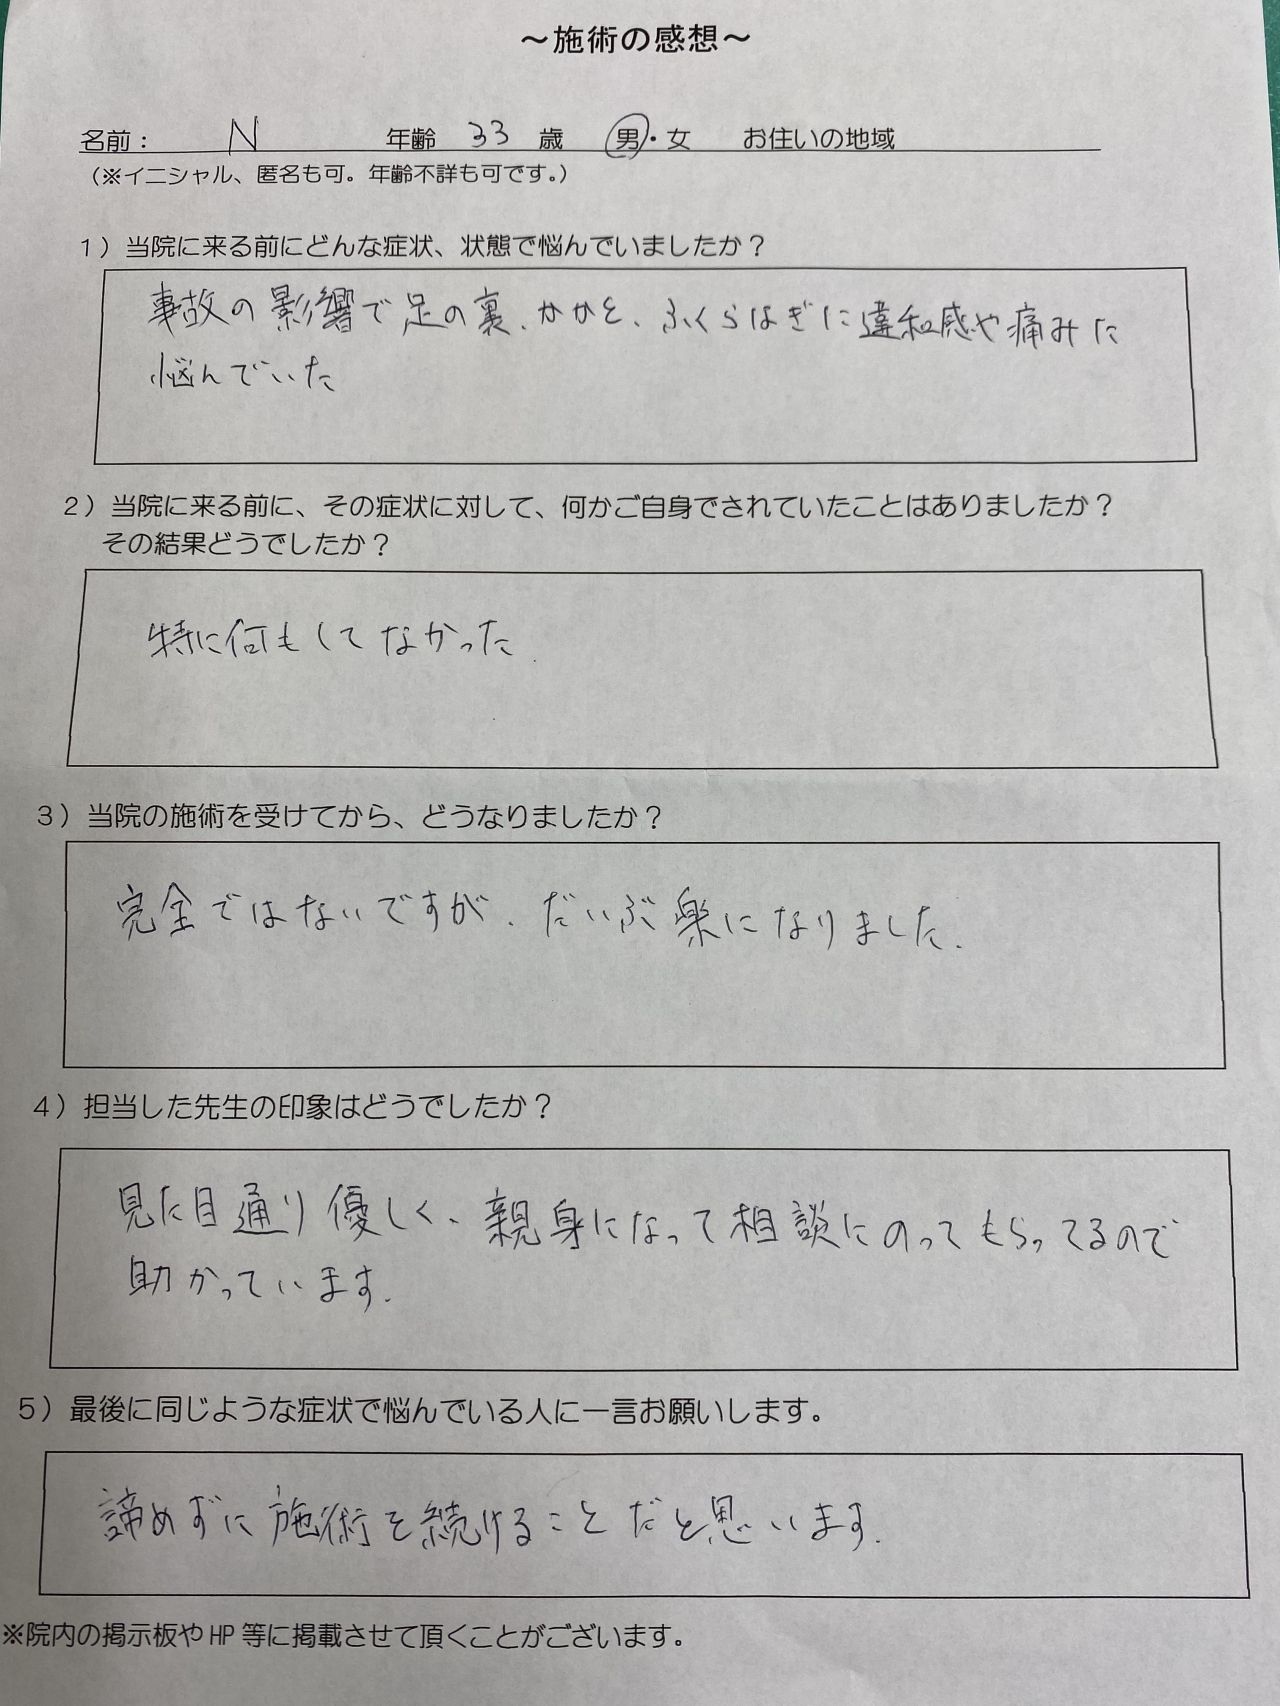 ～施術の感想～
名前： N 年齢 33 歳 男・女 お住いの地域
（※イニシャル、匿名も可。年齢不詳も可です。）
１）当院に来る前にどんな症状、状態で悩んでいましたか？
事故の影響で足の裏、かかと、ふくらはぎに違和感や痛みに
悩んでいた
２）当院に来る前に、その症状に対して、何かご自身でされていたことはありましたか？
その結果どうでしたか？
特に何もしてなかった
３）当院の施術を受けてから、どうなりましたか？
完全ではないですが、だいぶ楽になりました。
４）担当した先生の印象はどうでしたか？
見た目通り優しく、親身になって相談にのってもらってるので
助かっています。
５）最後に同じような症状で悩んでいる人に一言お願いします。
諦めずに施術を続けることだと思います。
※院内の掲示板やHP等に掲載させて頂くことがございます。